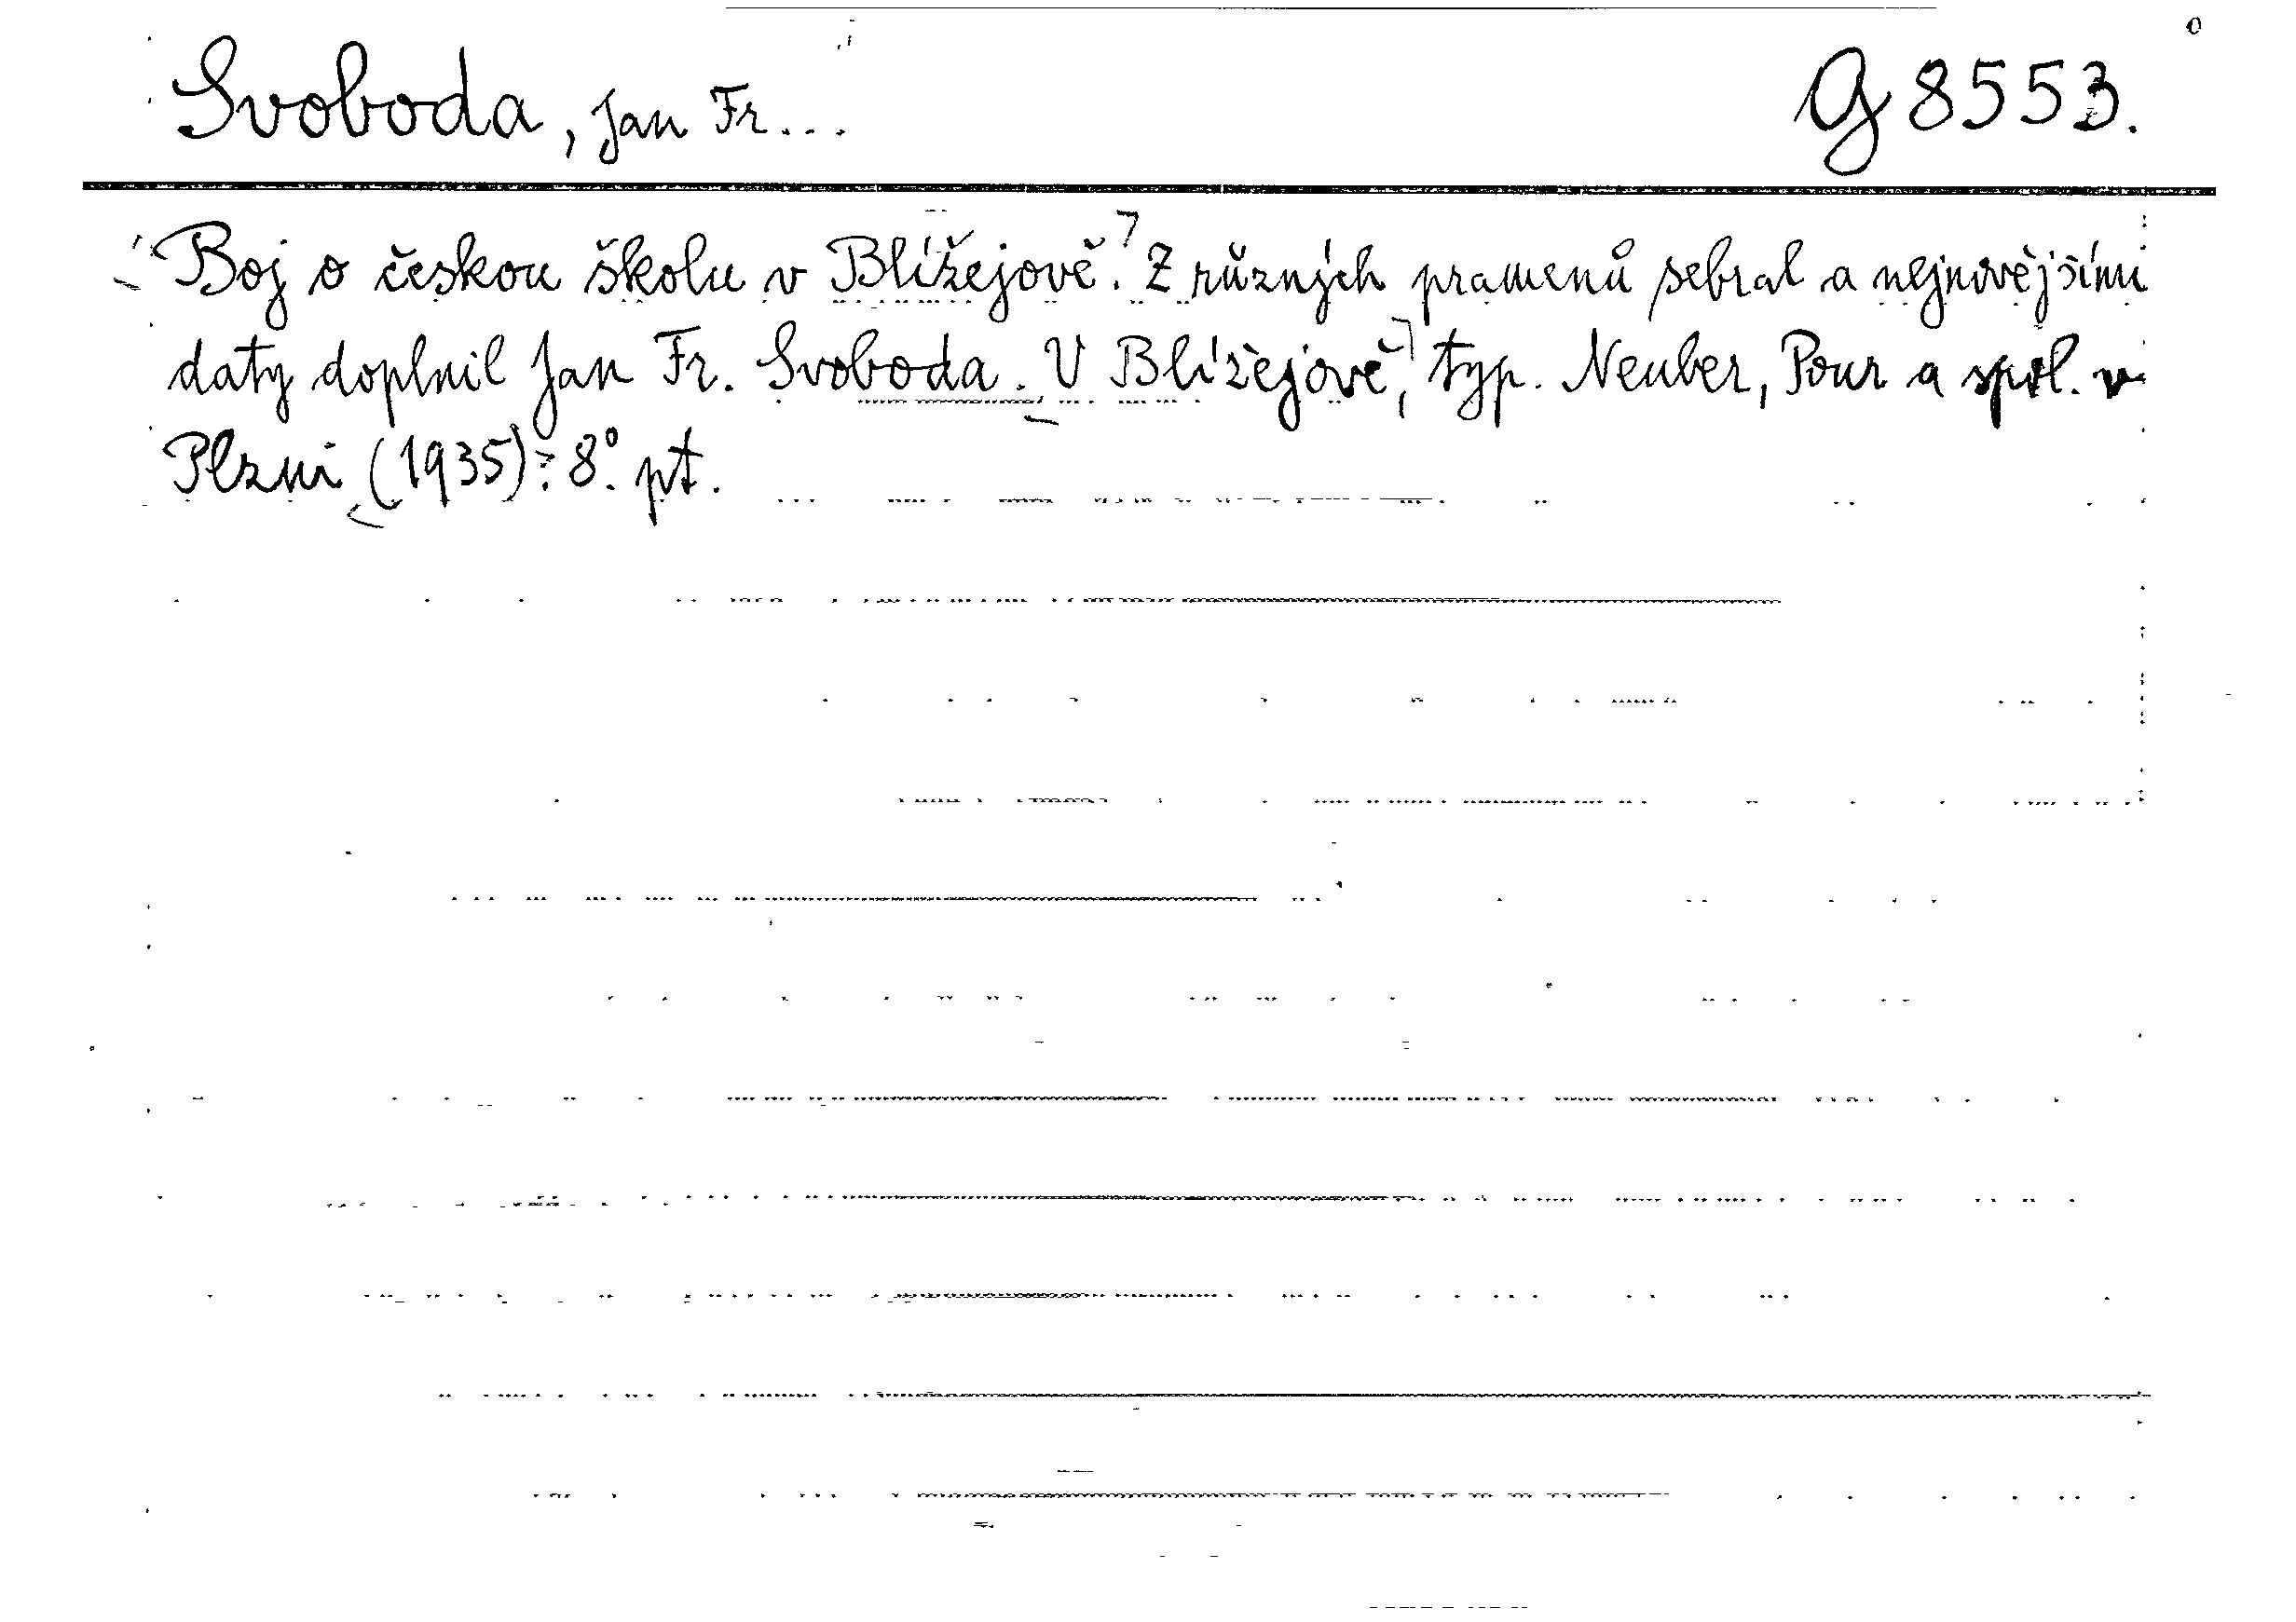 Svoboda, Jan Fr... G 8553.
Boj o českou školu v Blížejově. Z různých pramenů sebral a nejnovějšími
daty doplnil Jan Fr. Svoboda. V Blížejově, typ. Neuber, Pour a spol. v
Plzni (1935). 8°. pt.